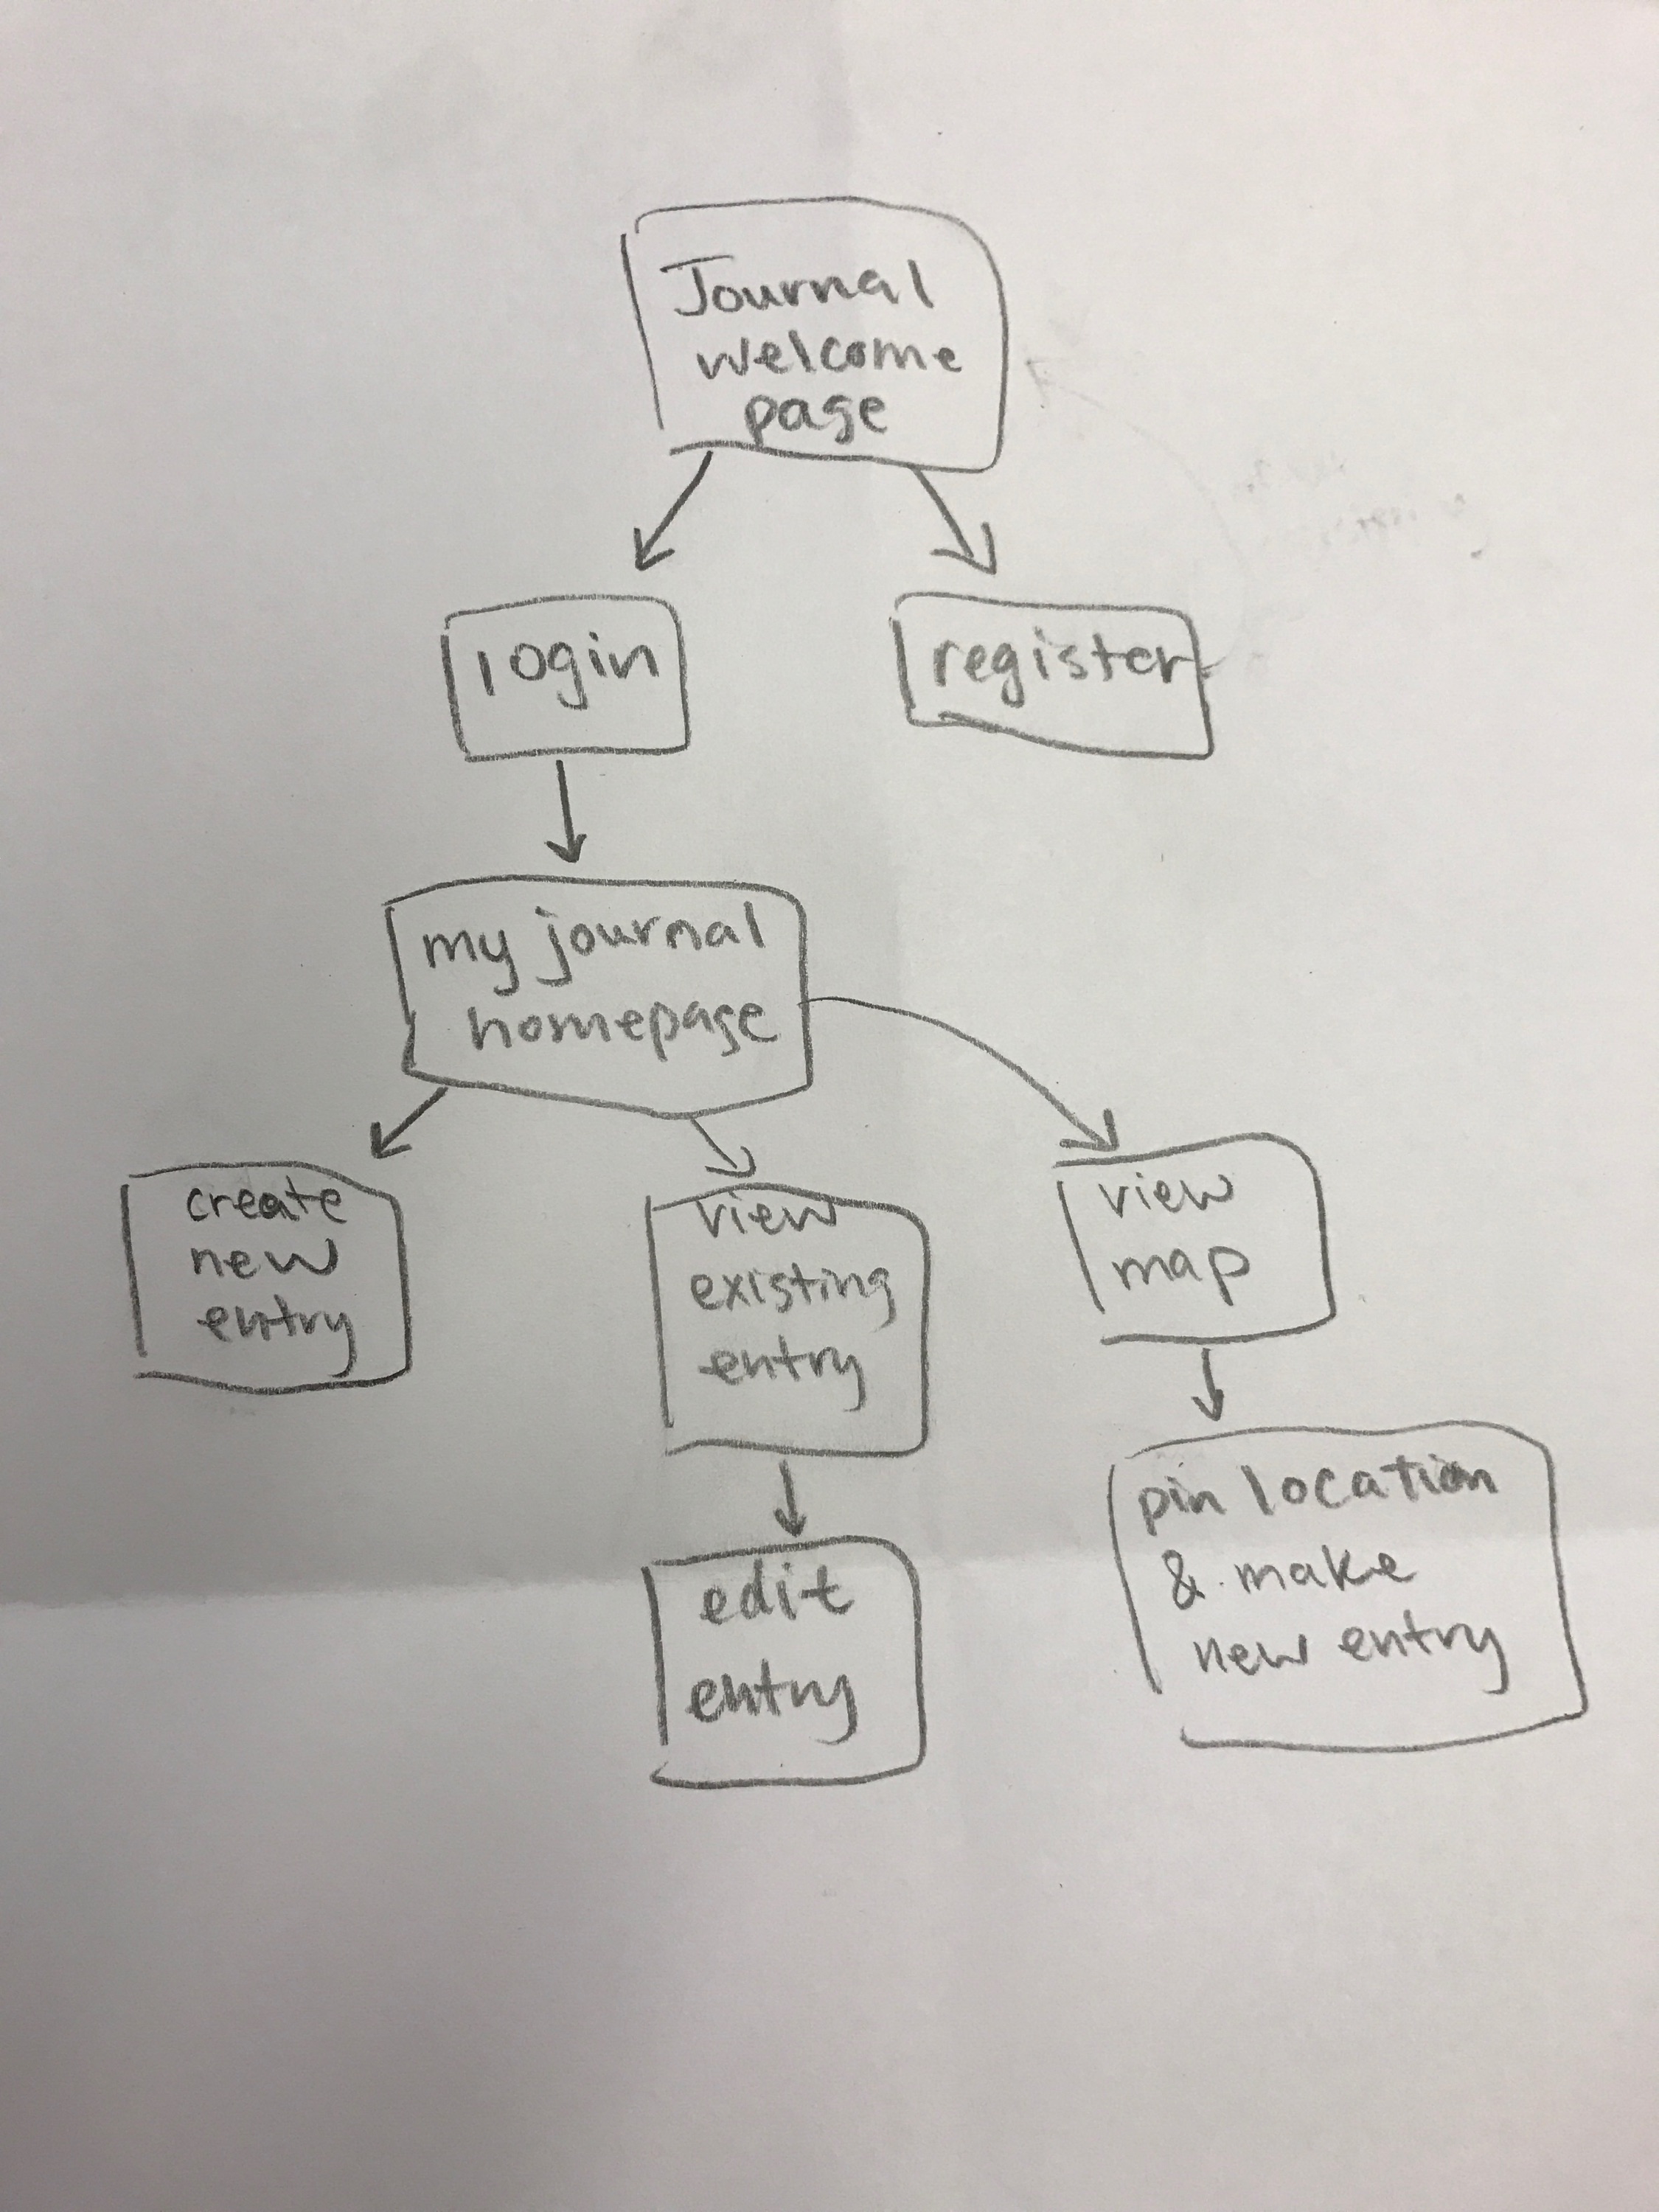 Journal
welcome
page
login
register
my journal
homepage
create
new
entry
view
existing
entry
view
map
edit
entry
pin location
& make
new entry